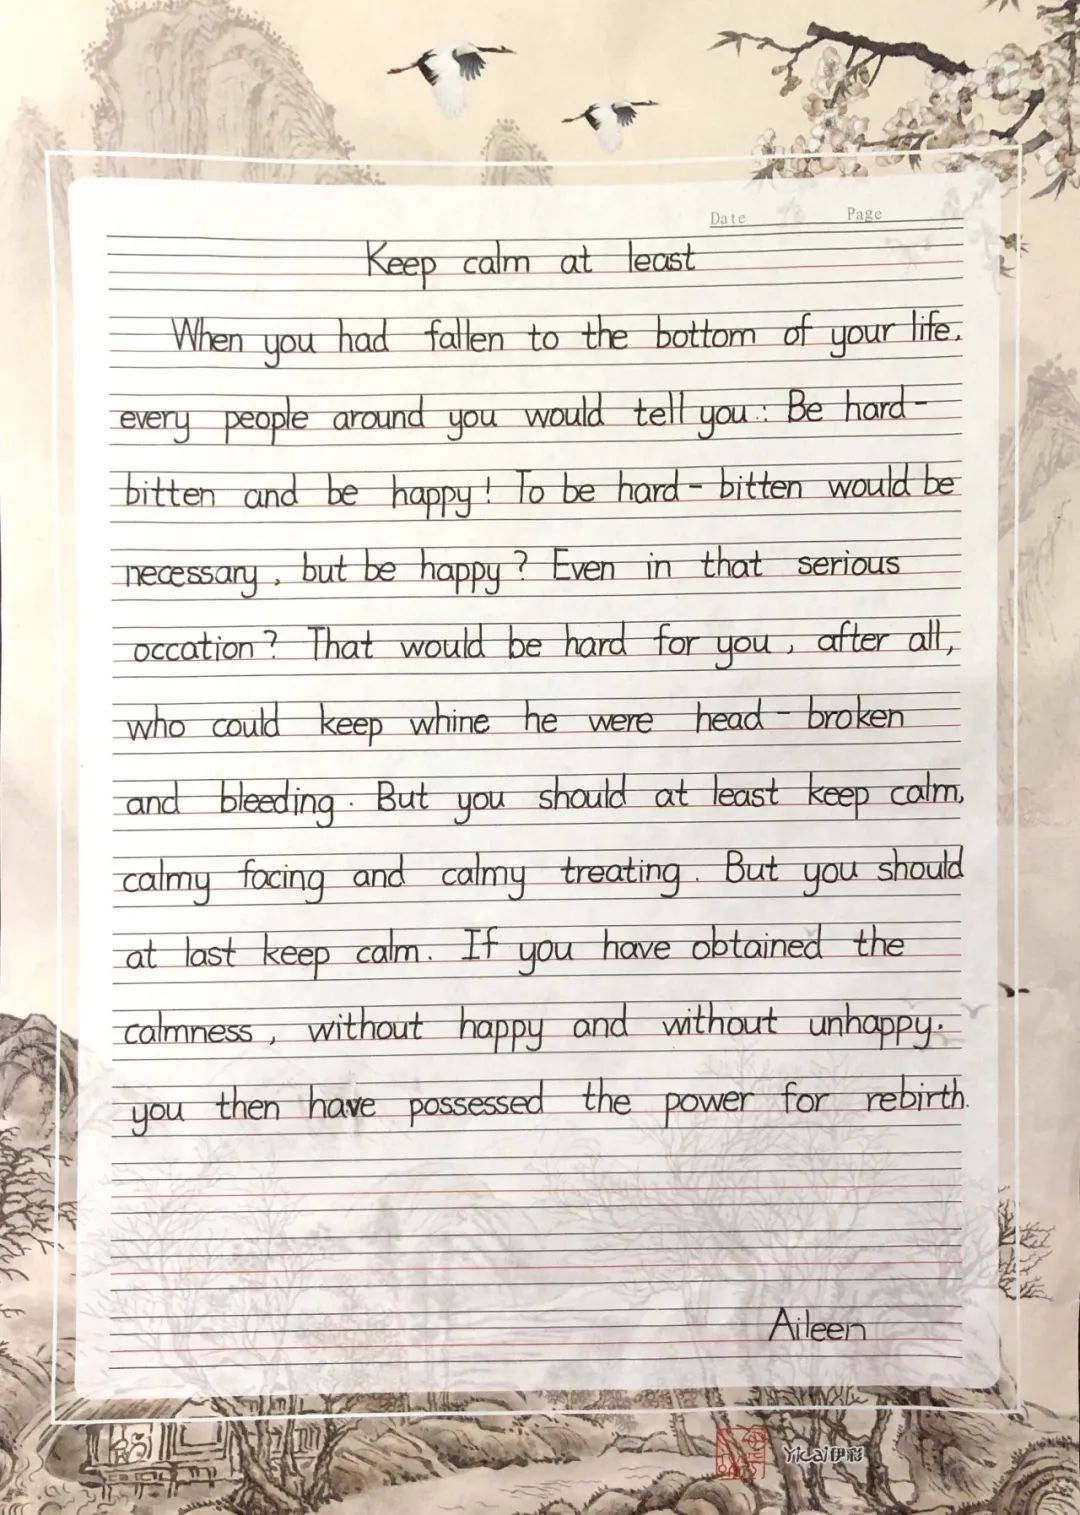 Date Page
Keep calm at least
When you had fallen to the bottom of your life.
every people around you would tell you: Be hard-
bitten and be happy! To be hard-bitten would be
necessary, but be happy? Even in that serious
occation? That would be hard for you, after all,
who could keep whine he were head-broken
and bleeding. But you should at least keep calm,
calmy facing and calmy treating. But you should
at last keep calm. If you have obtained the
calmness, without happy and without unhappy.
you then have possessed the power for rebirth.
Aileen
Yicai伊彩